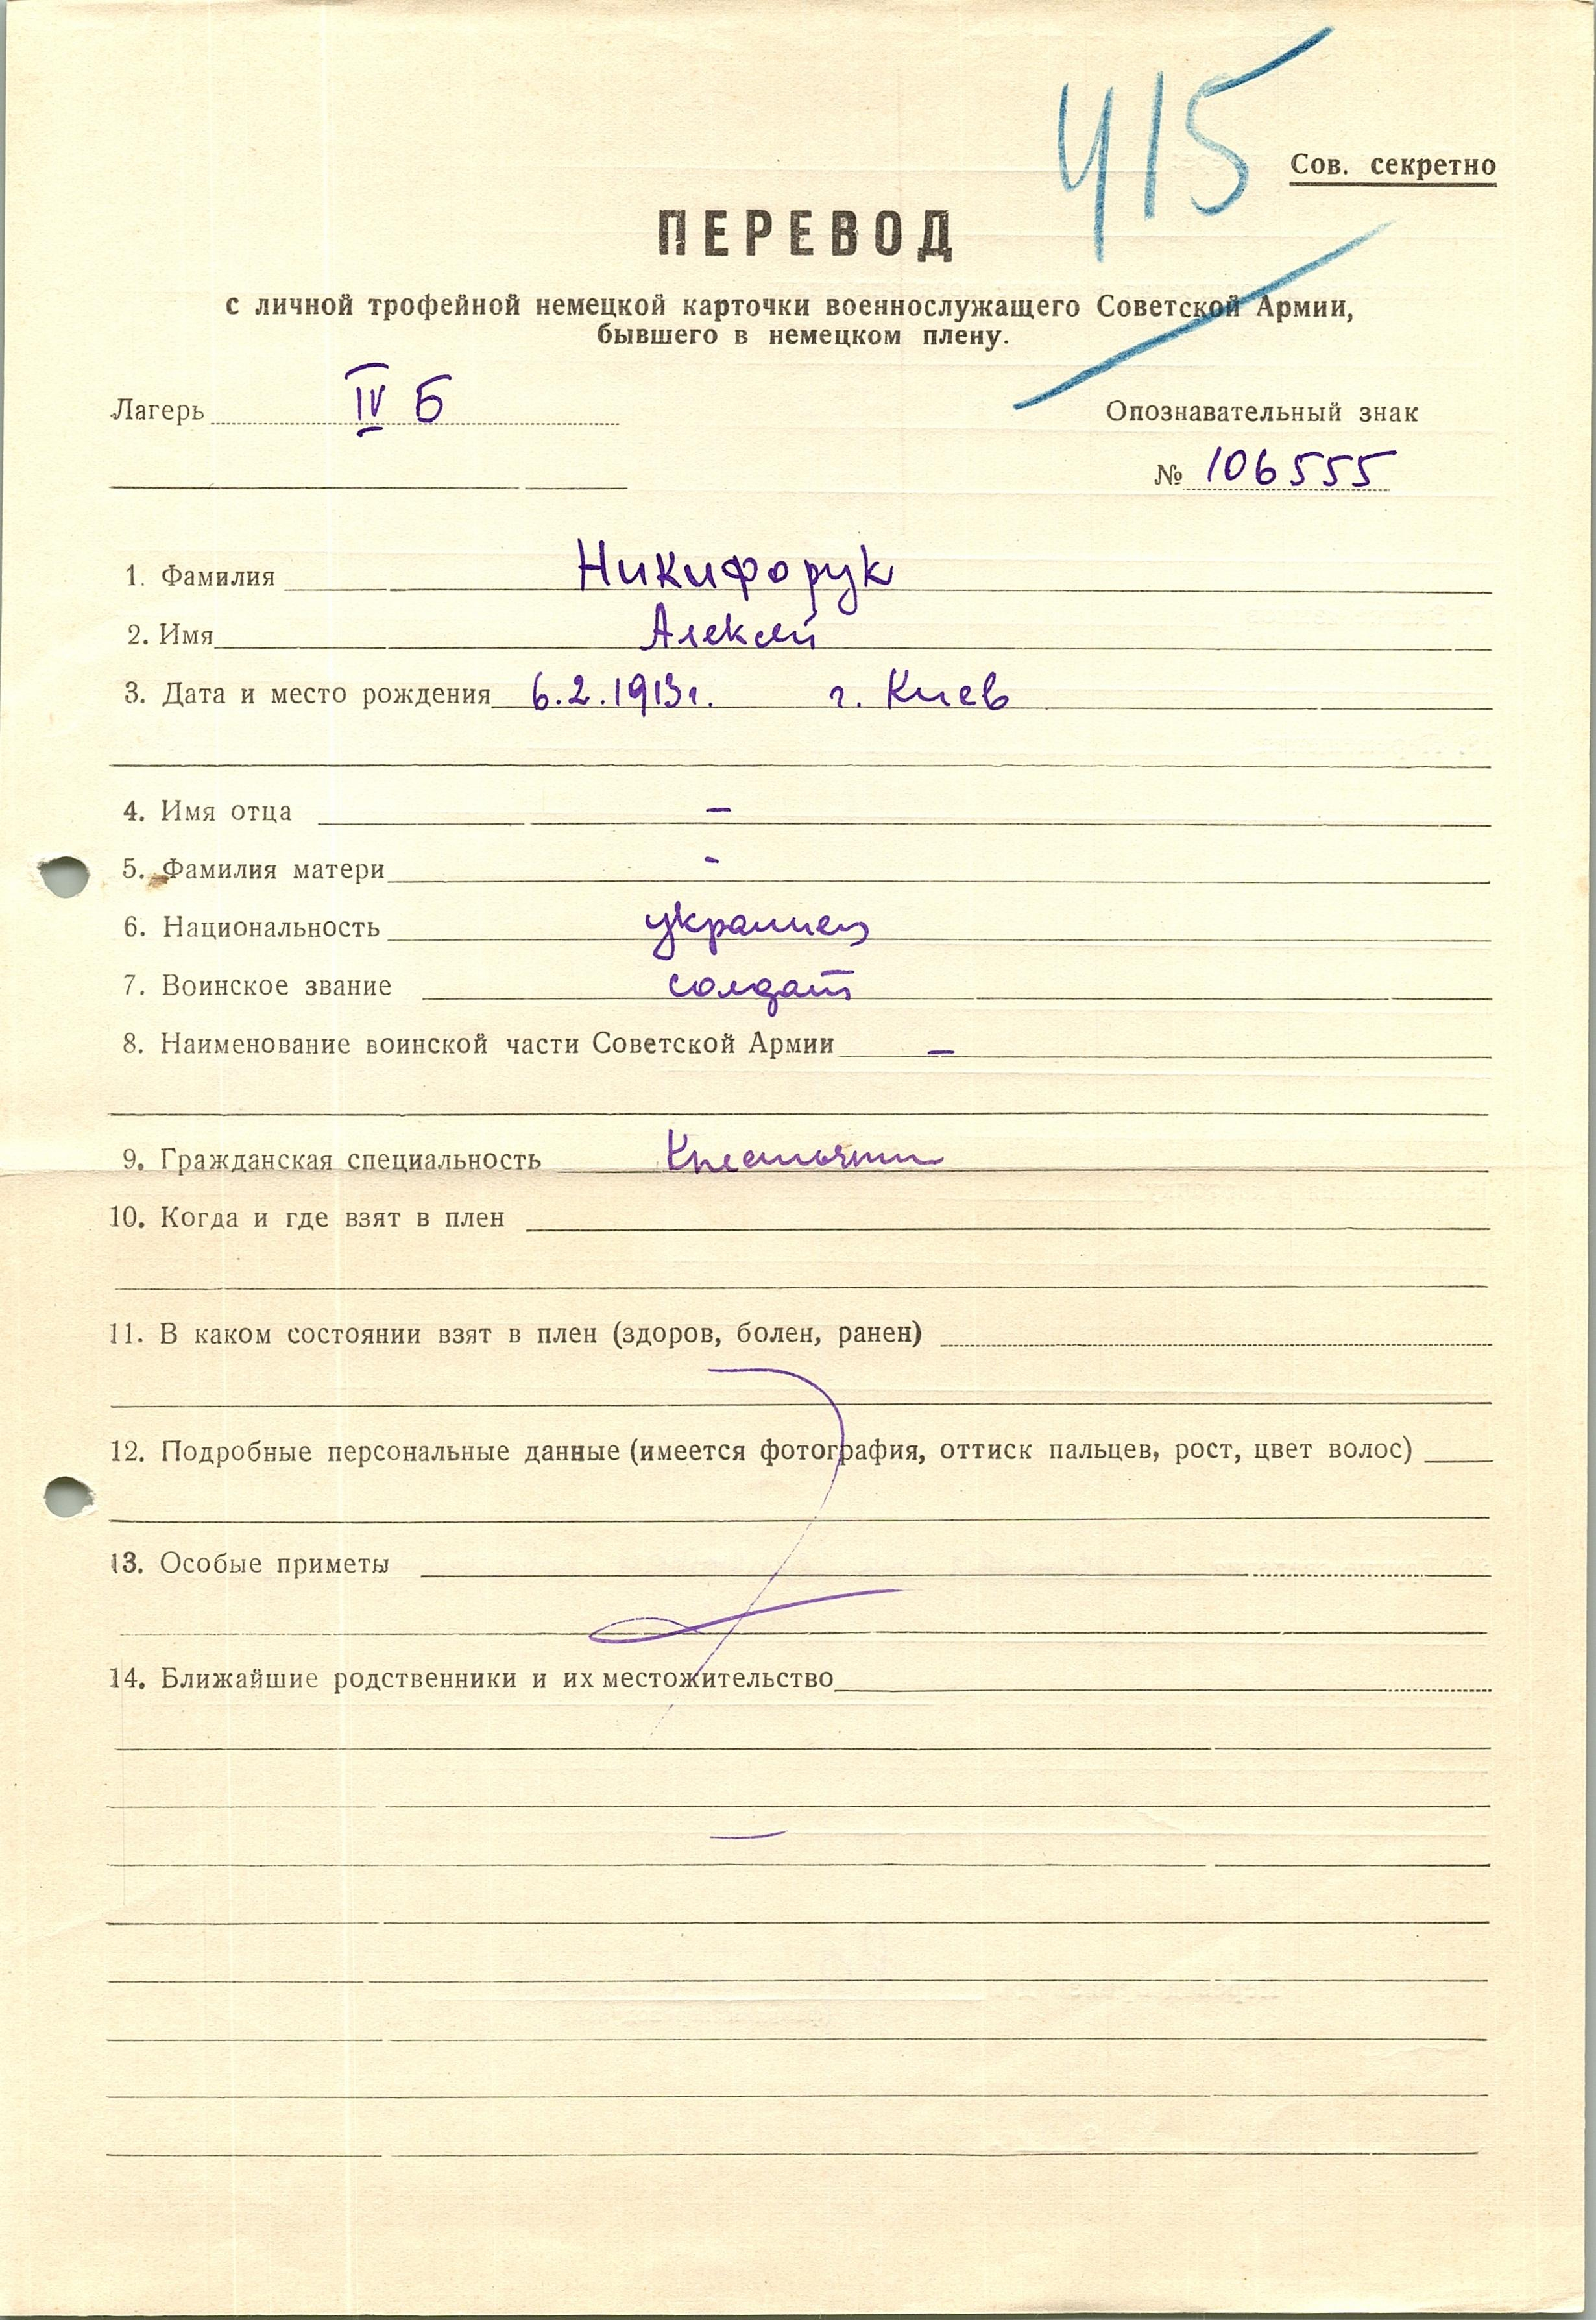 415
Сов. секретно
ПЕРЕВОД
с личной трофейной немецкой карточки военнослужащего Советской Армии,
бывшего в немецком плену.
Лагерь IV Б
Опознавательный знак
№ 106555
1. Фамилия Никифорук
2. Имя Алексей
3. Дата и место рождения 6.2.1913г. г. Киев
4. Имя отца –
5. Фамилия матери -
6. Национальность украинец
7. Воинское звание солдат
8. Наименование воинской части Советской Армии –
9. Гражданская специальность Крестьянин
10. Когда и где взят в плен
11. В каком состоянии взят в плен (здоров, болен, ранен)
12. Подробные персональные данные (имеется фотография, оттиск пальцев, рост, цвет волос)
13. Особые приметы
14. Ближайшие родственники и их местожительство
–